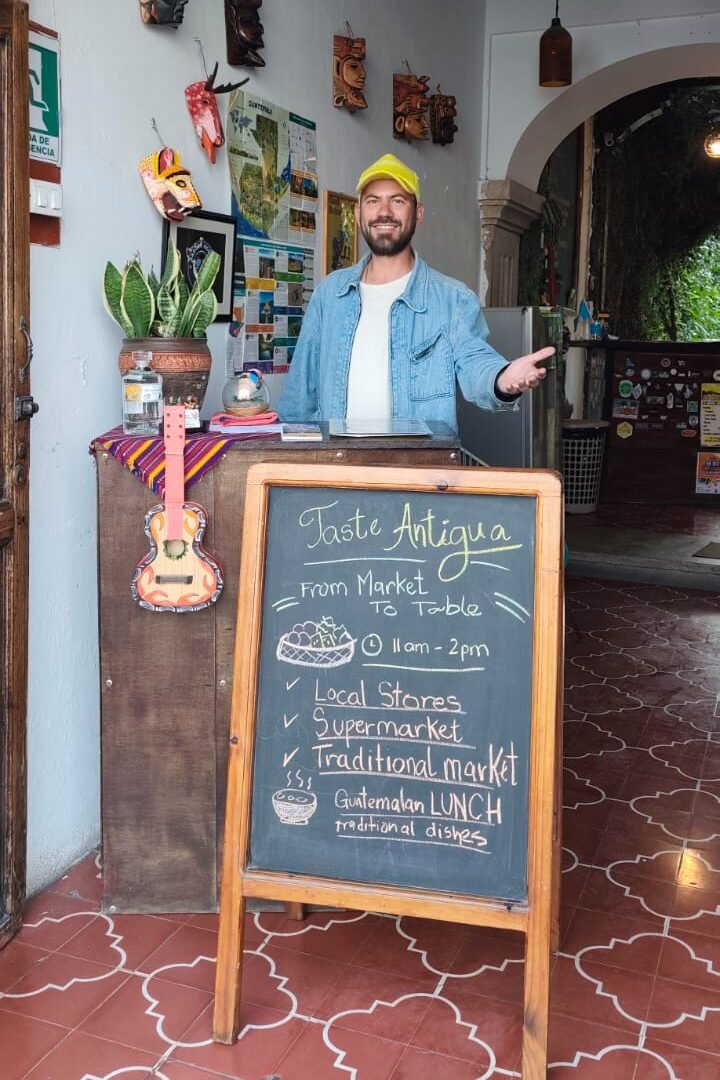 DE
GENCIA
GUATEMALA
Taste Antigua
From Market
To Table
11am - 2pm
Local Stores
Supermarket
Traditional market
Guatemalan LUNCH
traditional dishes